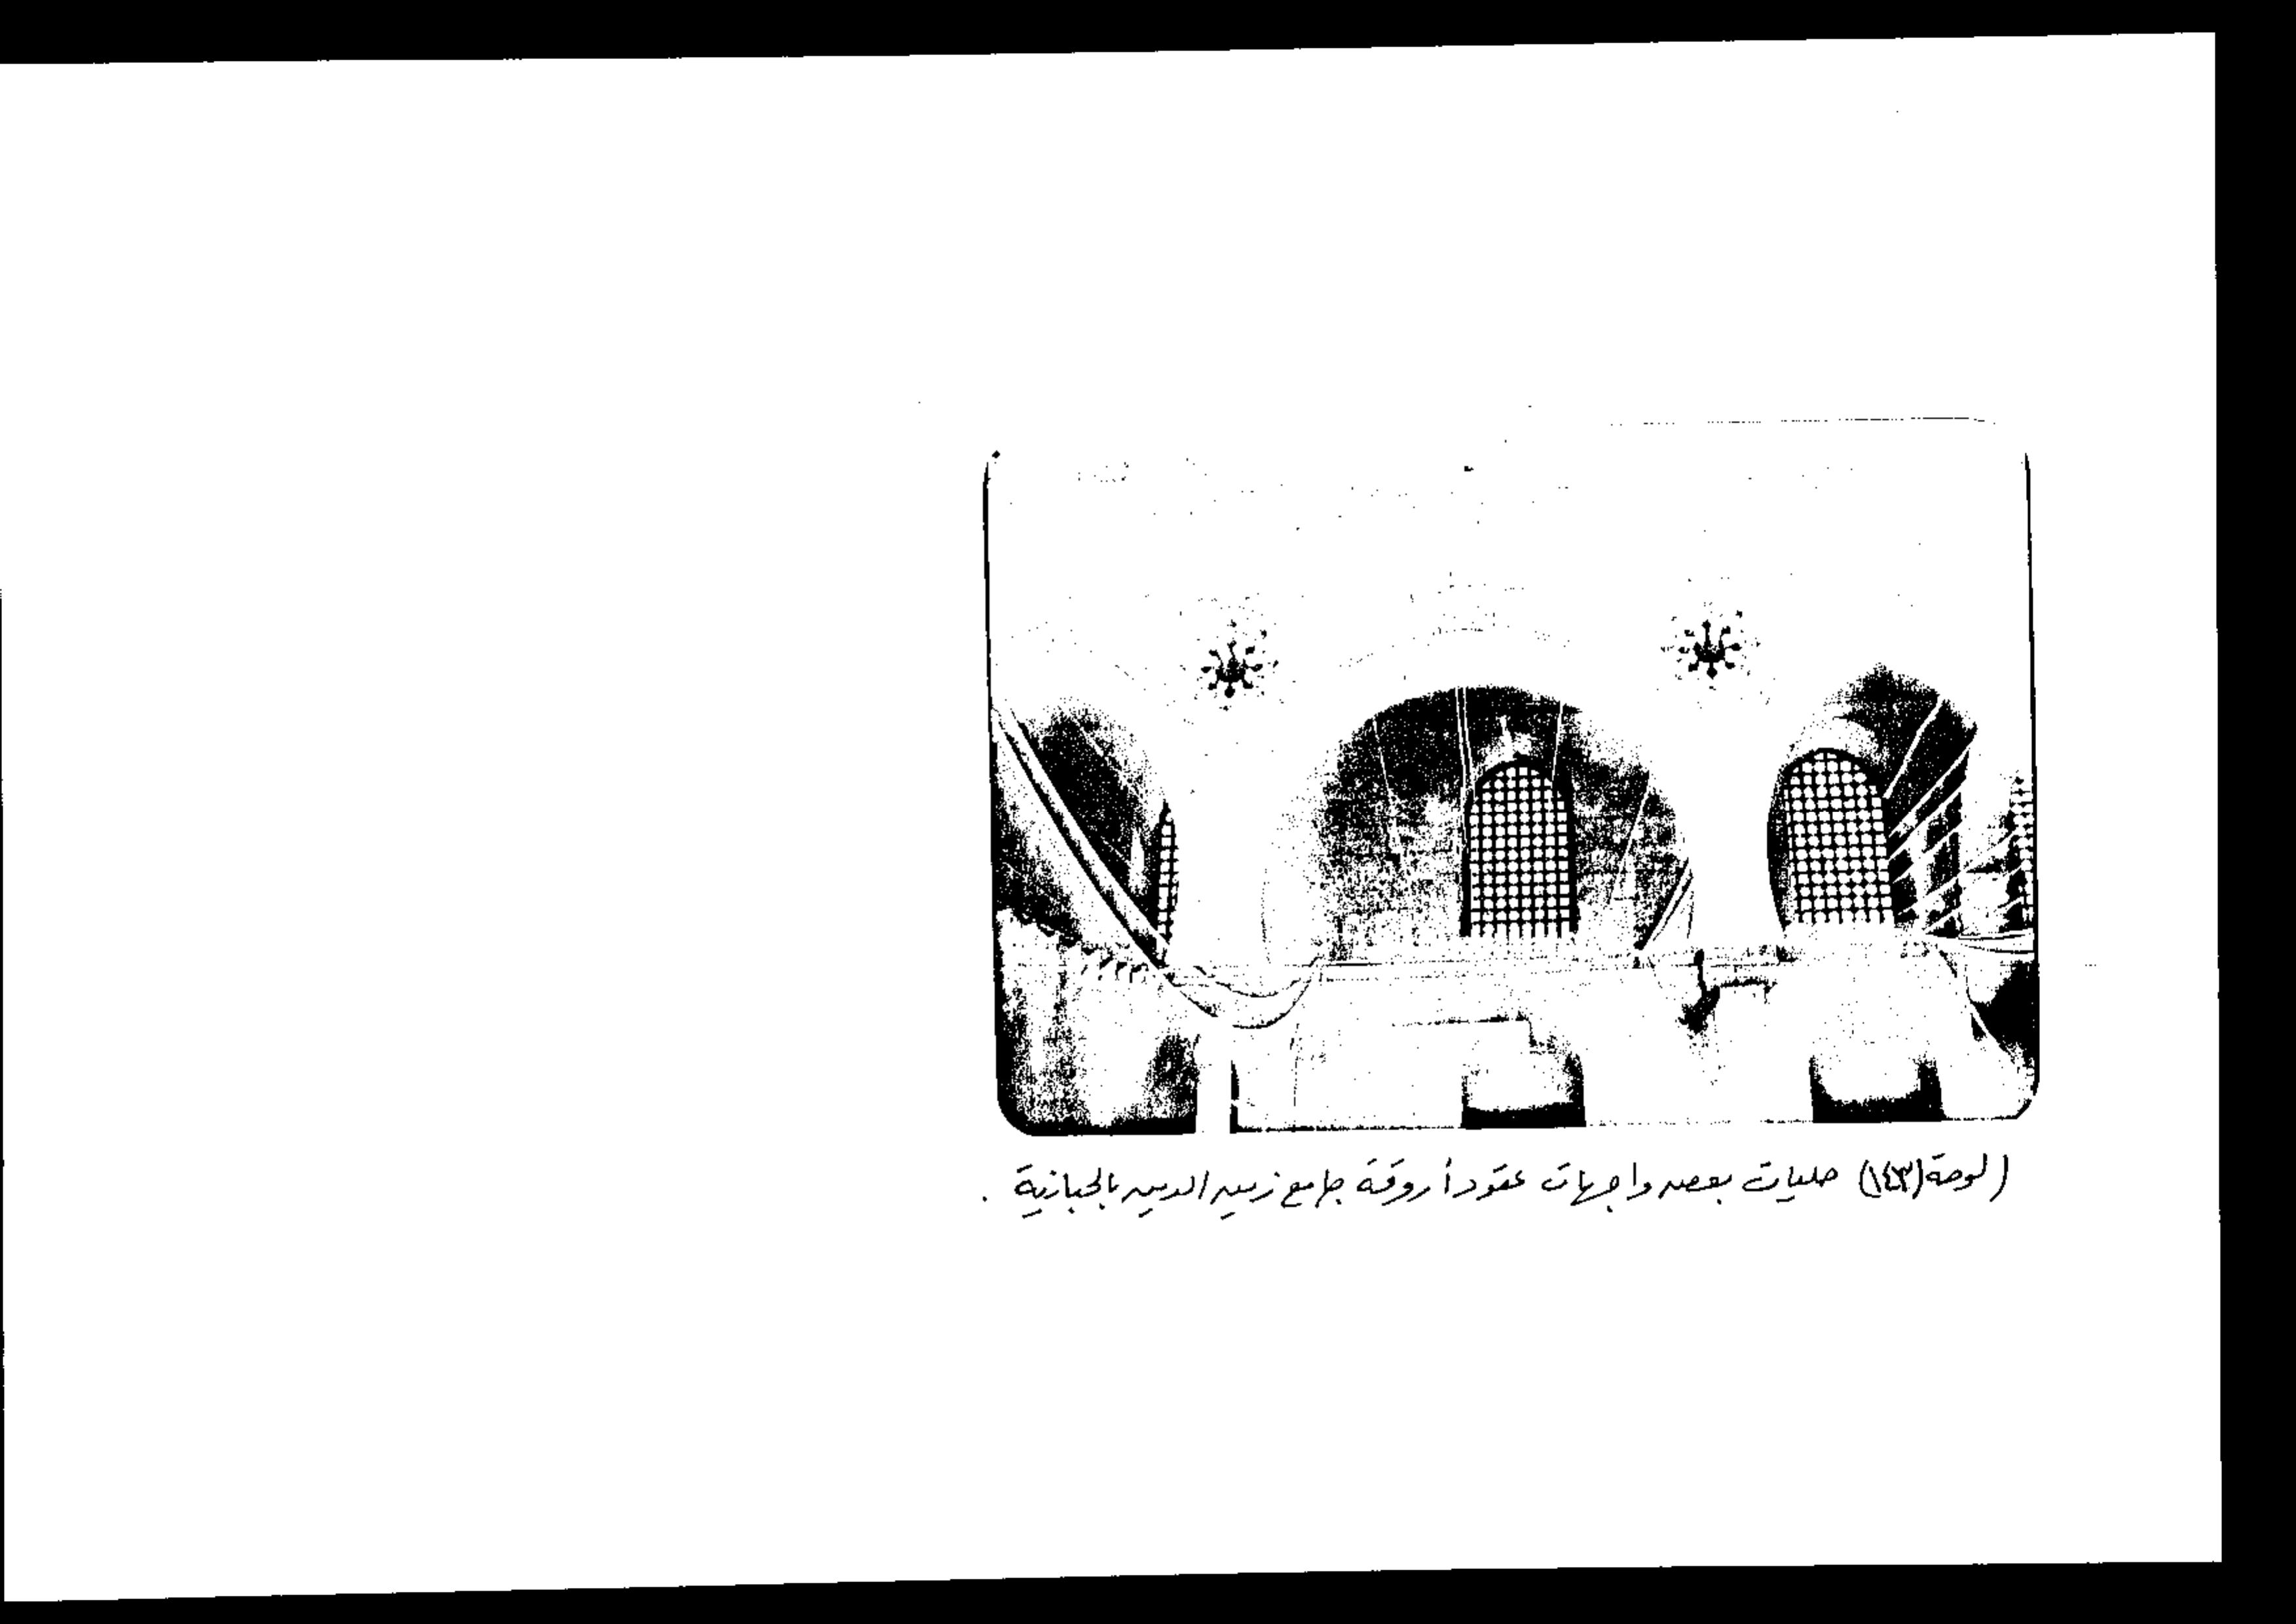 اللوحة (١٤٣) حليات بعض واجهات عقود أروقة جامع زين الدين بالجبازية .